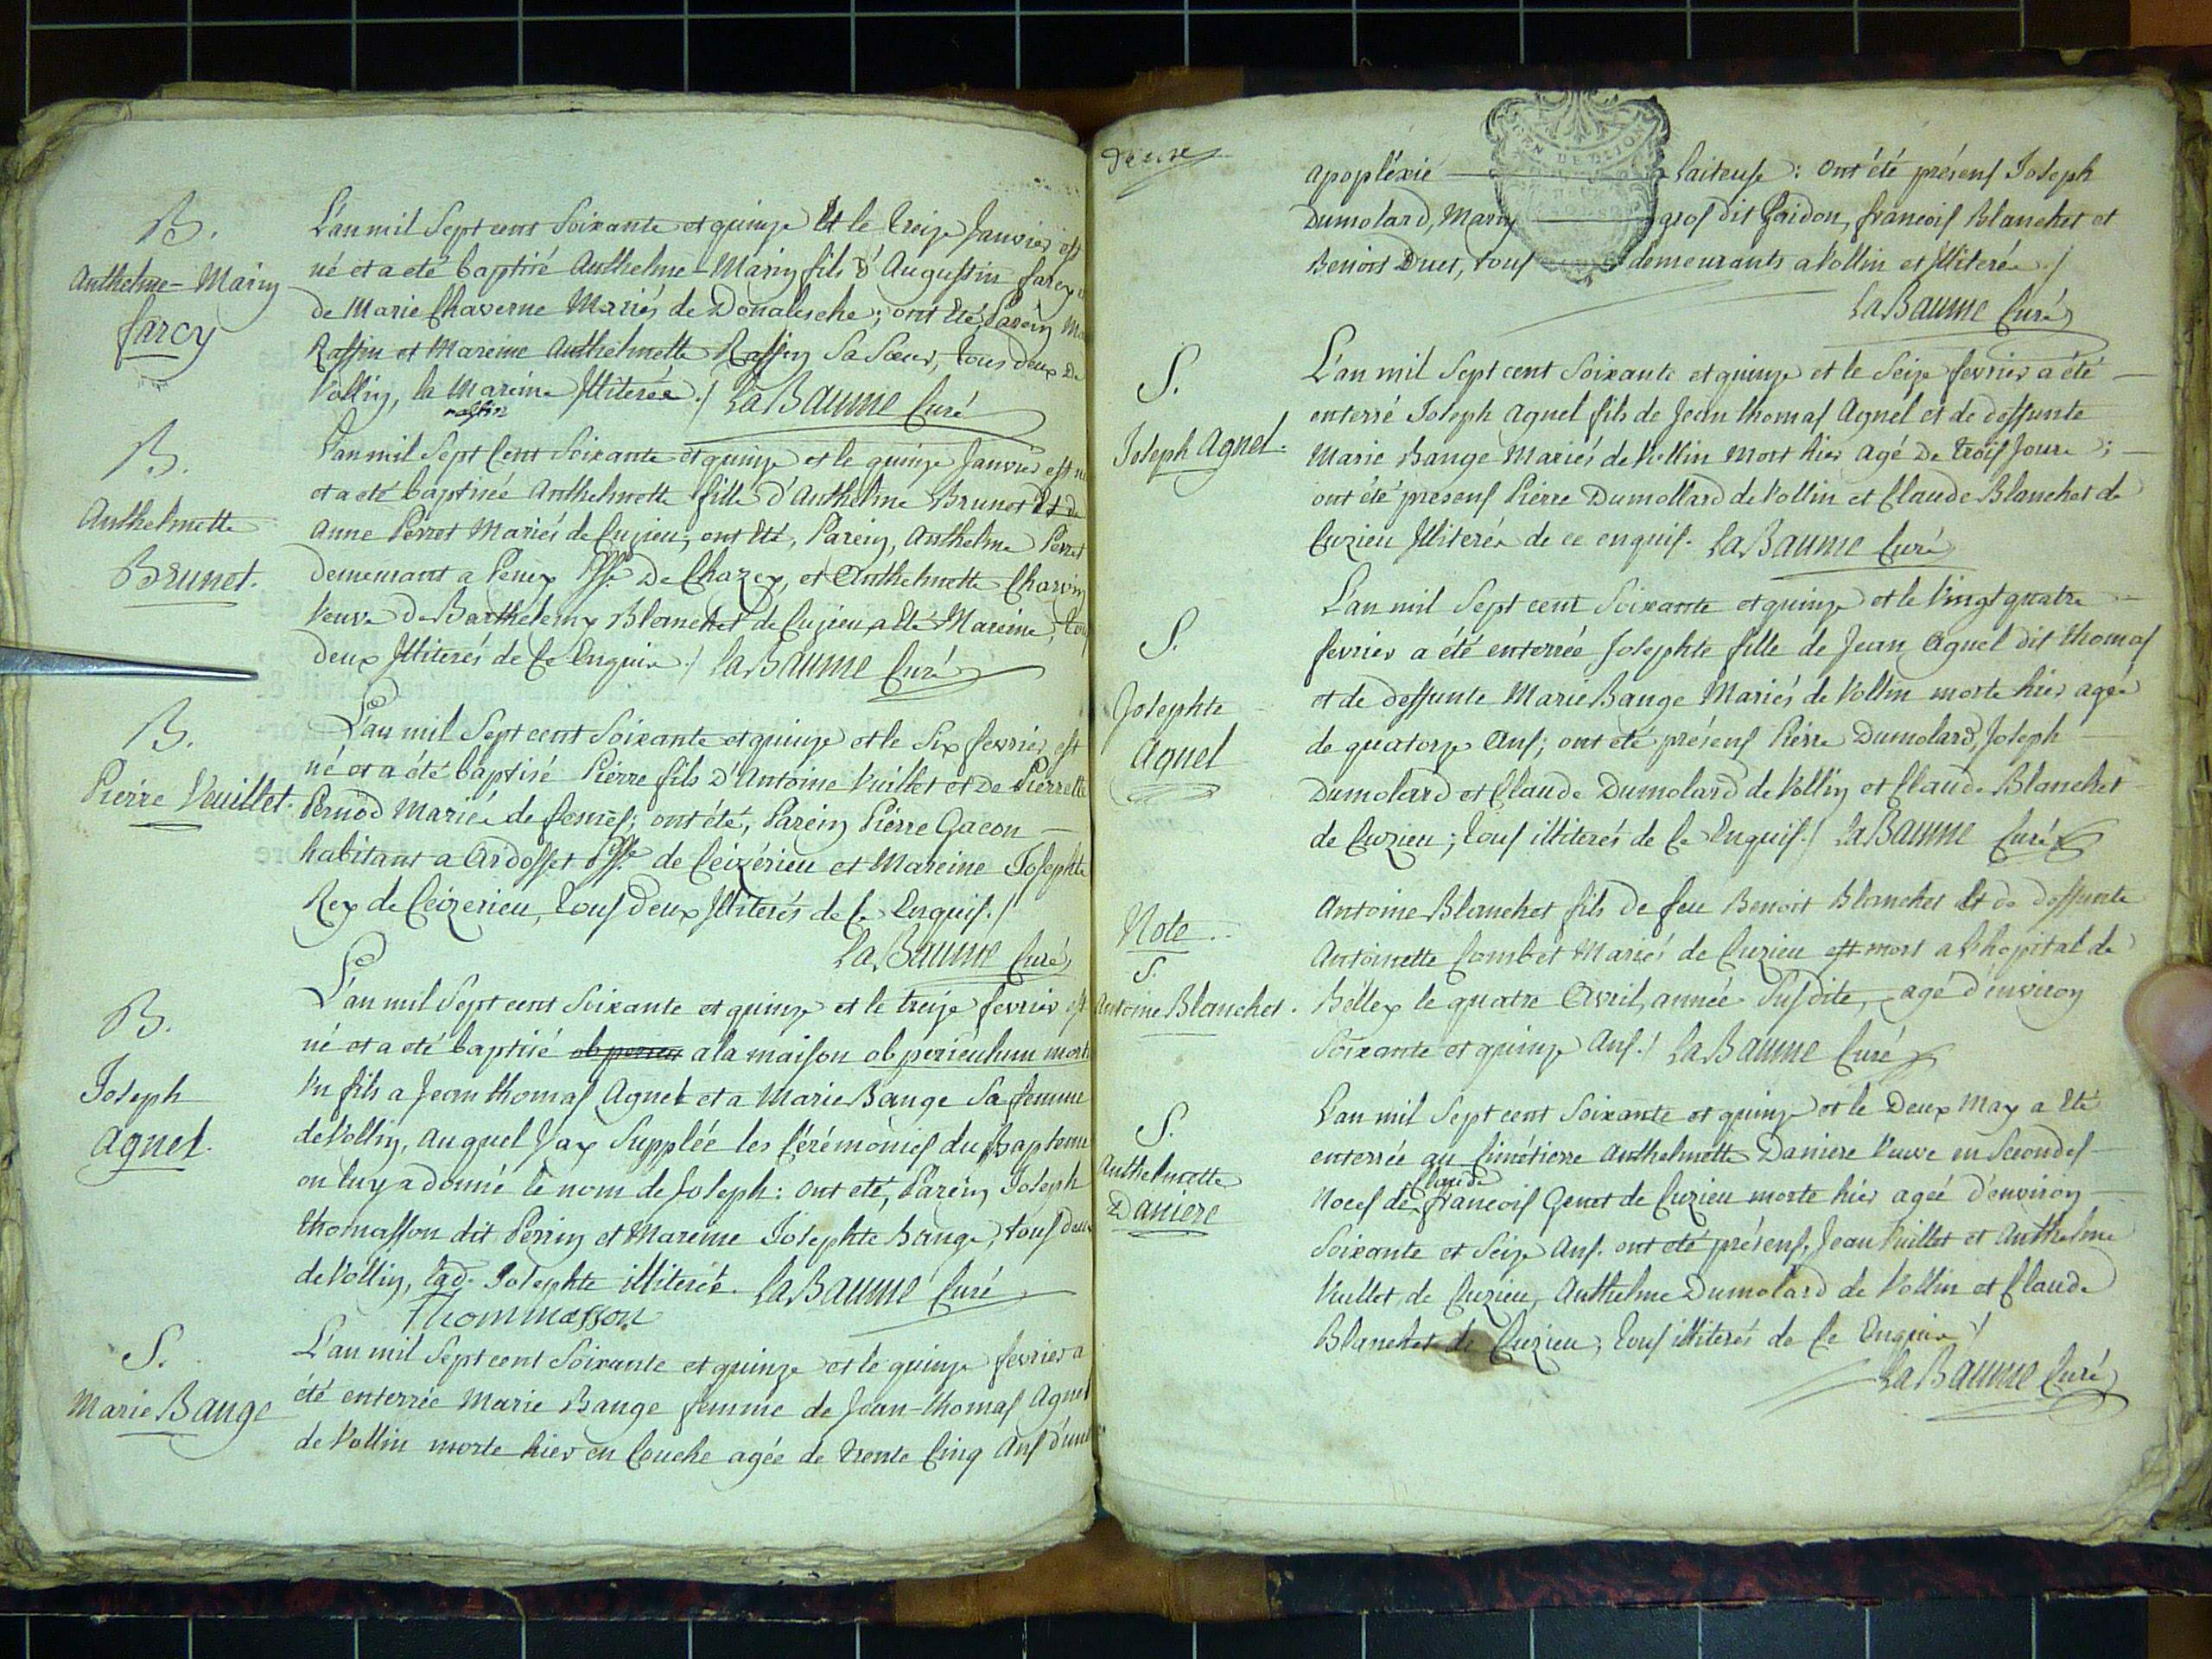 B.
Anthelme-Marin
farcy
L'an mil Sept cent Soixante et quinze Et le treize Janvier est
né et a eté baptisé Anthelme-Marin fils d'Augustin farcy
de Marie Chaverne Mariés de Donalesche; ont Eté, Parein
Raffin et Mareine Anthelmette Raffin Sa Soeur, tous deux de
Vollin, la Mareine Illiterée./ LaBaume Curé
raffin
B.
Anthelmette
Brunet.
L'an mil Sept Cent Soixante et quinze et le quinze Janvier est
et a eté baptisée Anthelmette fille d'Anthelme Brunet Et de
Anne Perret Mariés de Cuzieu; ont Eté, Parein, Anthelme Perret
demeurant a Peney Psse De Chazey, et Anthelmette Charvin
Veuve De Barthelemy Blanchet de Cuzieu a Eté Mareine,
deux Illiterés de Ce Enquis./ LaBaume Curé
B.
Pierre Veuillet.
L'an mil Sept cent Soixante et quinze et le Six fevrier est
né et a été baptisé Pierre fils D'Antoine Vuillet et De Pierrette
Pernod Mariés de ; ont été, Parein Pierre Gacon
habitant a Ardosset Psse de Ceizérieu et Mareine Josephte
Rey de Ceizerieu, tous Deux Illiterés de Ce Enquis./
LaBaume Curé
B.
Joseph
Agnel.
L'an mil Sept cent Soixante et quinze et le treize fevrier est
né et a eté baptisé a la maison ob periculum mortis
Un fils a Jean thomas Agnel et a Marie Bange Sa femme
de Vollin, auquel J'ay Supplée les Cérémonies du Baptême
on luy a donné le nom de Joseph: ont eté, Parein, Joseph
thomasson dit Perrin et Mareine Josephte Bange, tous deux
de Vollin, lad. Josephte illiterée. LaBaume Curé
Thommasson
S.
Marie Bange
L'an mil Sept cent Soixante et quinze et le quinze fevrier a
été enterrée Marie Bange femme de Jean-thomas Agnel
de Vollin morte hier en Couche agée de trente Cinq Ans d'une
deuxe
EN DE DIJON
apopléxie laiteuse: Ont été présens Joseph
Dumolard, Marin gros dit Gaidon, francois Blanchet et
Benoit Duet, tous demeurants a Vollin et Illiterés./
LaBaume Curé
S.
Joseph Agnel.
L'an mil Sept cent Soixante et quinze et le Seize fevrier a été
enterré Joseph Agnel fils de Jean thomas Agnel et de deffunte
Marie Bange Mariés de Vollin Mort hier agé De trois Jours;
ont été presens Pierre Dumollard de Vollin et Claude Blanchet de
Cuzieu Illiterés de ce enquis. LaBaume Curé
S.
Josephte
Agnel
L'an mil Sept cent Soixante et quinze et le Vingt quatre
fevrier a été enterrée Josephte fille de Jean Agnel dit thomas
et de deffunte Marie Bange Mariés de Vollin morte hier agée
de quatorze Ans; ont été présens Pierre Dumolard, Joseph
Dumolard et Claude Dumolard de Vollin et Claude Blanchet
de Cuzieu; tous illiterés de Ce Enquis./ LaBaume Curé
Note.
S.
Antoine Blanchet.
Antoine Blanchet fils de feu Benoit Blanchet Et de deffunte
Antoinette Combet Mariés de Cuzieu est mort a l'hopital de
Belley le quatre Avril, année Susdite, agé d'environ
Soixante et quinze Ans./ LaBaume Curé
S.
Anthelmette
Daniere
L'an mil Sept cent Soixante et quinze et le Deux May a Eté
enterrée au Cimétierre Anthelmette Daniere Veuve en Secondes
Claude
Noces de francois Genet de Cuzieu morte hier agée d'environ
Soixante et Seize Ans. ont eté présens, Jean Vuillet et Anthelme
Vullet de Cuzieu, Anthelme Dumolard de Vollin et Claude
Blanchet de Cuzieu; tous illiterés de Ce Enquis./
LaBaume Curé